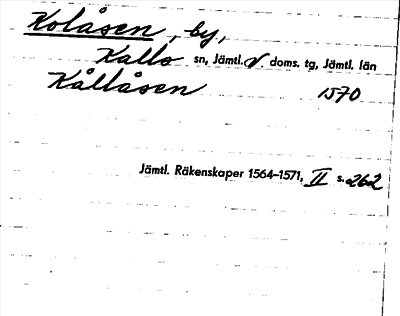 Kolåsen, by,
Kalls sn, Jämtl. V. doms. tg, Jämtl. län
Kållåsen 1570
Jämtl. Räkenskaper 1564-1571, II s. 262